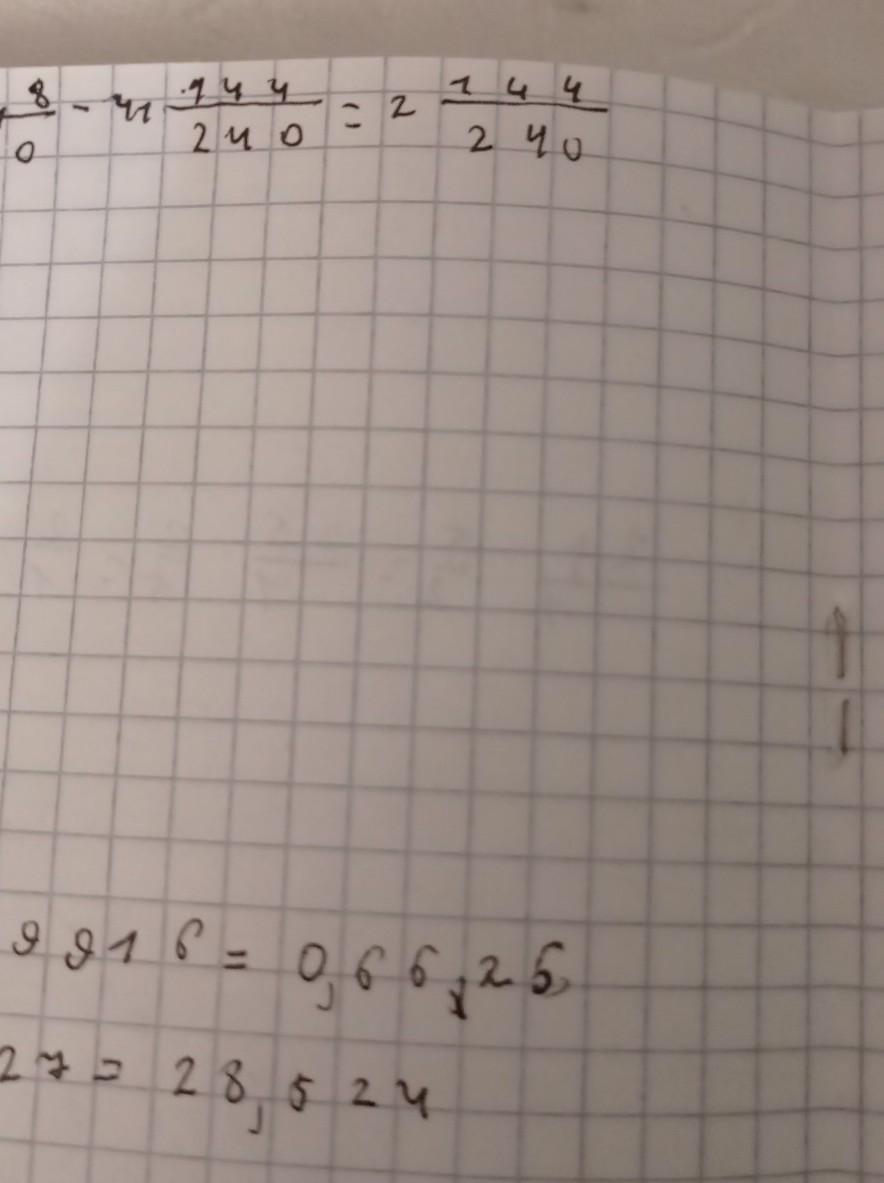 8/0 - 4 144/240 = 2 144/240
9916 = 0,66,25
27 = 28,524